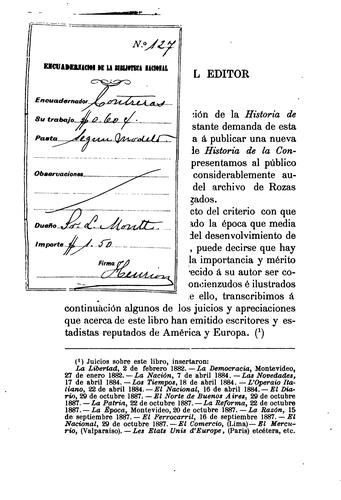 N.º 127
ENCUADERNACION DE LA BIBLIOTECA NACIONAL
Encuadernador Contreras
Su trabajo $0.60
Pasta Segun modelo
Observaciones
Dueño Sr. L. Montt
Importe $1.50
Firma Henrion
L EDITOR
ión de la Historia de
stante demanda de esta
a á publicar una nueva
le Historia de la Con-
presentamos al público
considerablemente au-
del archivo de Rozas
zados.
cto del criterio con que
ado la época que media
lel desenvolvimiento de
, puede decirse que hay
la importancia y mérito
ecido á su autor ser co-
oncienzudos é ilustrados
e ello, transcribimos á
continuación algunos de los juicios y apreciaciones
que acerca de este libro han emitido escritores y es-
tadistas reputados de América y Europa. (¹)
(¹) Juicios sobre este libro, insertaron:
La Libertad, 2 de febrero 1882. — La Democracia, Montevideo,
27 de enero 1882. — La Nación, 7 de abril 1884. — Las Novedades,
17 de abril 1884. — Los Tiempos, 18 de abril 1884. — L'Operaio Ita-
liano, 22 de abril 1884. — El Nacional, 16 de abril 1884. — El Dia-
rio, 29 de octubre 1887. — El Norte de Buenos Aires, 29 de octubre
1887. — La Patria, 22 de octubre 1887. — La Reforma, 22 de octubre
1887. — La Época, Montevideo, 20 de octubre 1887. — La Razón, 15
de septiembre 1887. — El Ferrocarril, 16 de septiembre 1887. — El
Nacional, 29 de octubre 1887. — El Comercio, (Lima) — El Mercu-
rio, (Valparaíso). — Les Etats Unis d'Europe, (Paris) etcétera, etc.